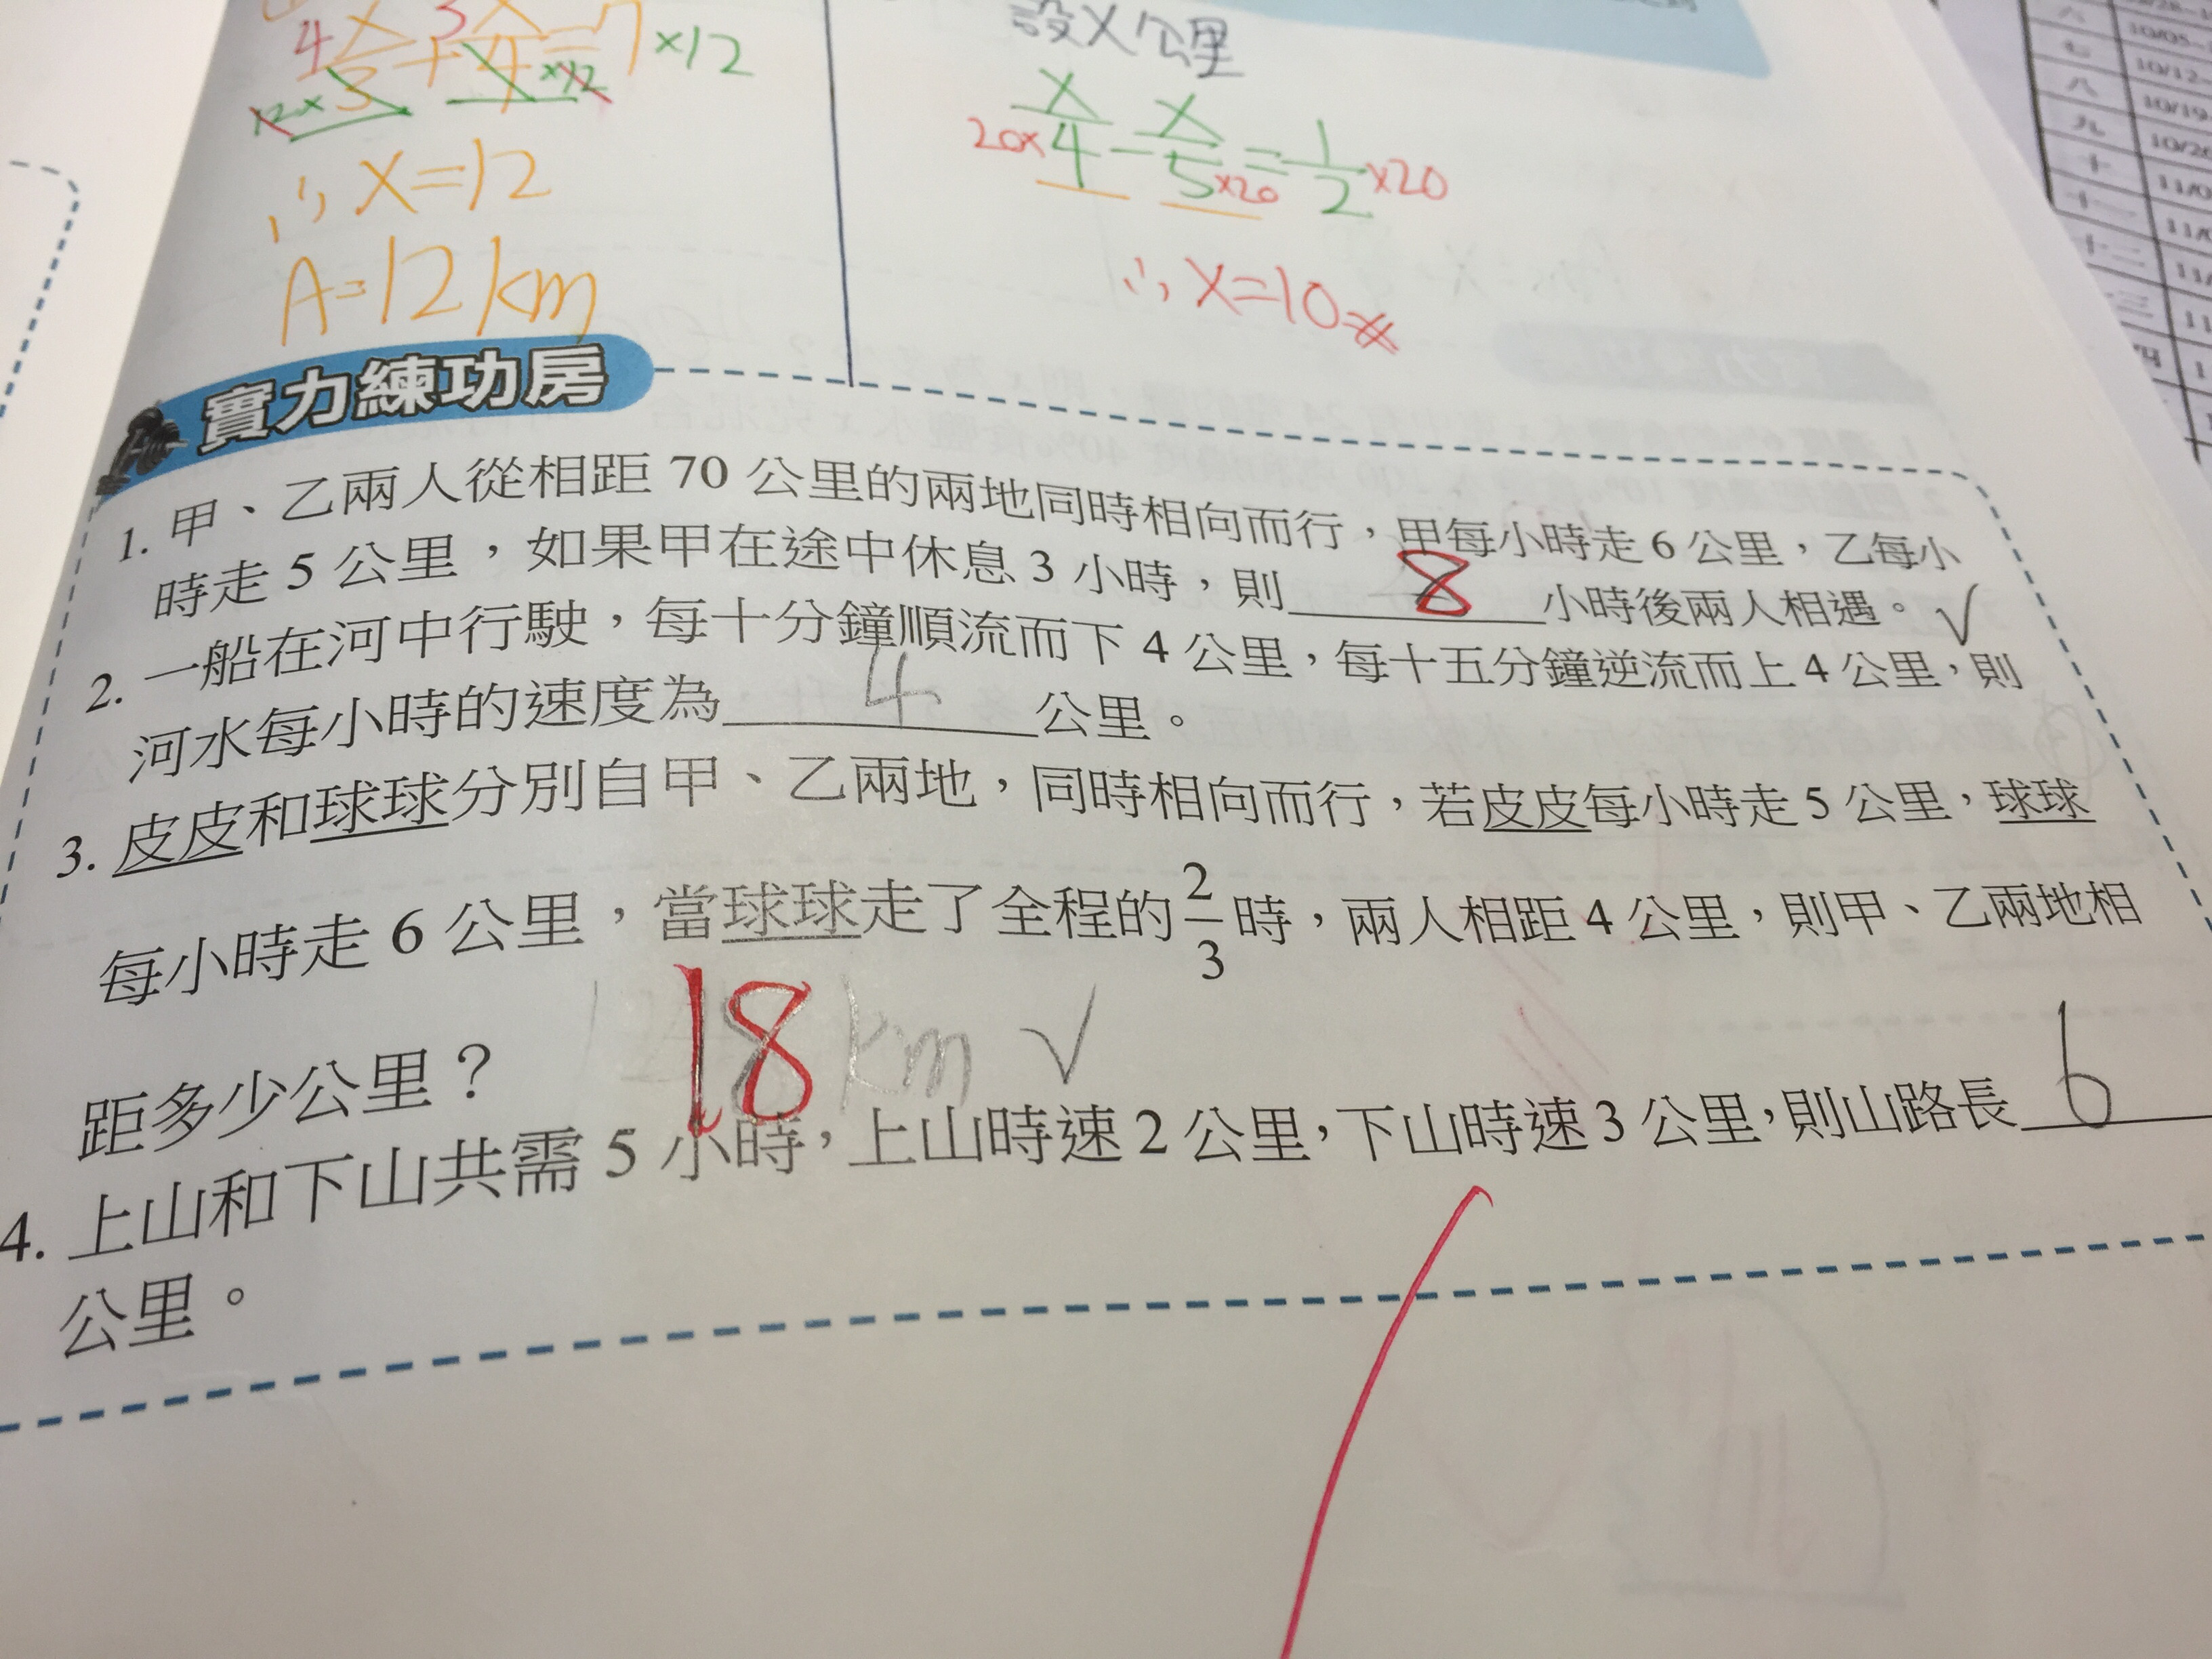 設X公里
4 X/3 + 3 X/4 = 7 ×12
12× ×12
X/4 - X/5 = 1/2 ×20
20× ×20
∴ X=12
∴ X=10
A=12km
實力練功房
1. 甲、乙兩人從相距 70 公里的兩地同時相向而行,甲每小時走 6 公里,乙每小
時走 5 公里,如果甲在途中休息 3 小時,則 8 小時後兩人相遇。√
2. 一船在河中行駛,每十分鐘順流而下 4 公里,每十五分鐘逆流而上 4 公里,則
河水每小時的速度為 4 公里。
3. 皮皮和球球分別自甲、乙兩地,同時相向而行,若皮皮每小時走 5 公里,球球
每小時走 6 公里,當球球走了全程的 2/3 時,兩人相距 4 公里,則甲、乙兩地相
距多少公里? 18 km √
4. 上山和下山共需 5 小時,上山時速 2 公里,下山時速 3 公里,則山路長 6
公里。
六
七
八
九
十
十一
十二
10/05
10/12
10/19
10/26